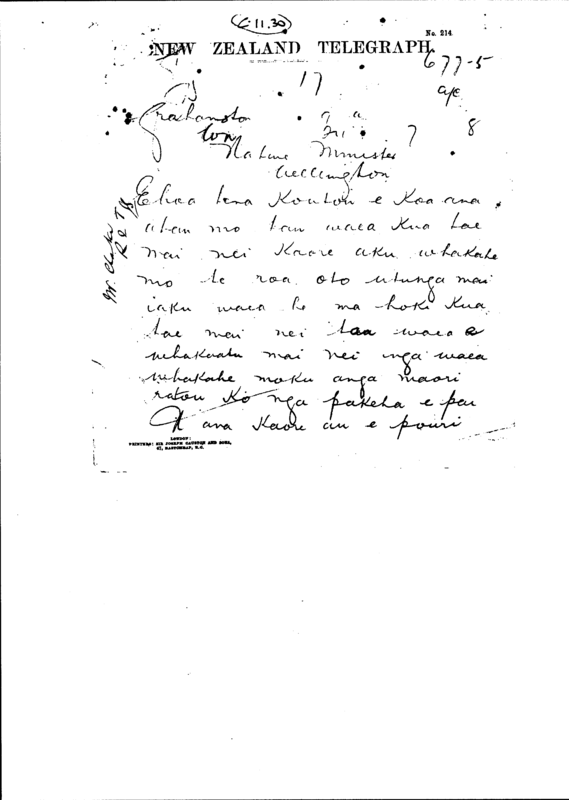 (6.11.30)
No. 214.
NEW ZEALAND TELEGRAPH.
677-5
17
Grahamston
7 8
Native Minister
Wellington
Mr Clarke
Ehoa tena Koutou e Koa ana
ahau mo tau waea Kua tae
mai nei Kaore aku whakahe
mo te roa oto utunga mai
iaku waea he ma hoki Kua
tae mai nei taa waea e
whakaatu mai nei nga waea
whakahe moku anga maori
ratou Ko nga pakeha e pai
ana Kaore au e pouri
LONDON:
PRINTERS: SIR JOSEPH CAUSTON AND SONS,
47, EASTCHEAP, E.C.